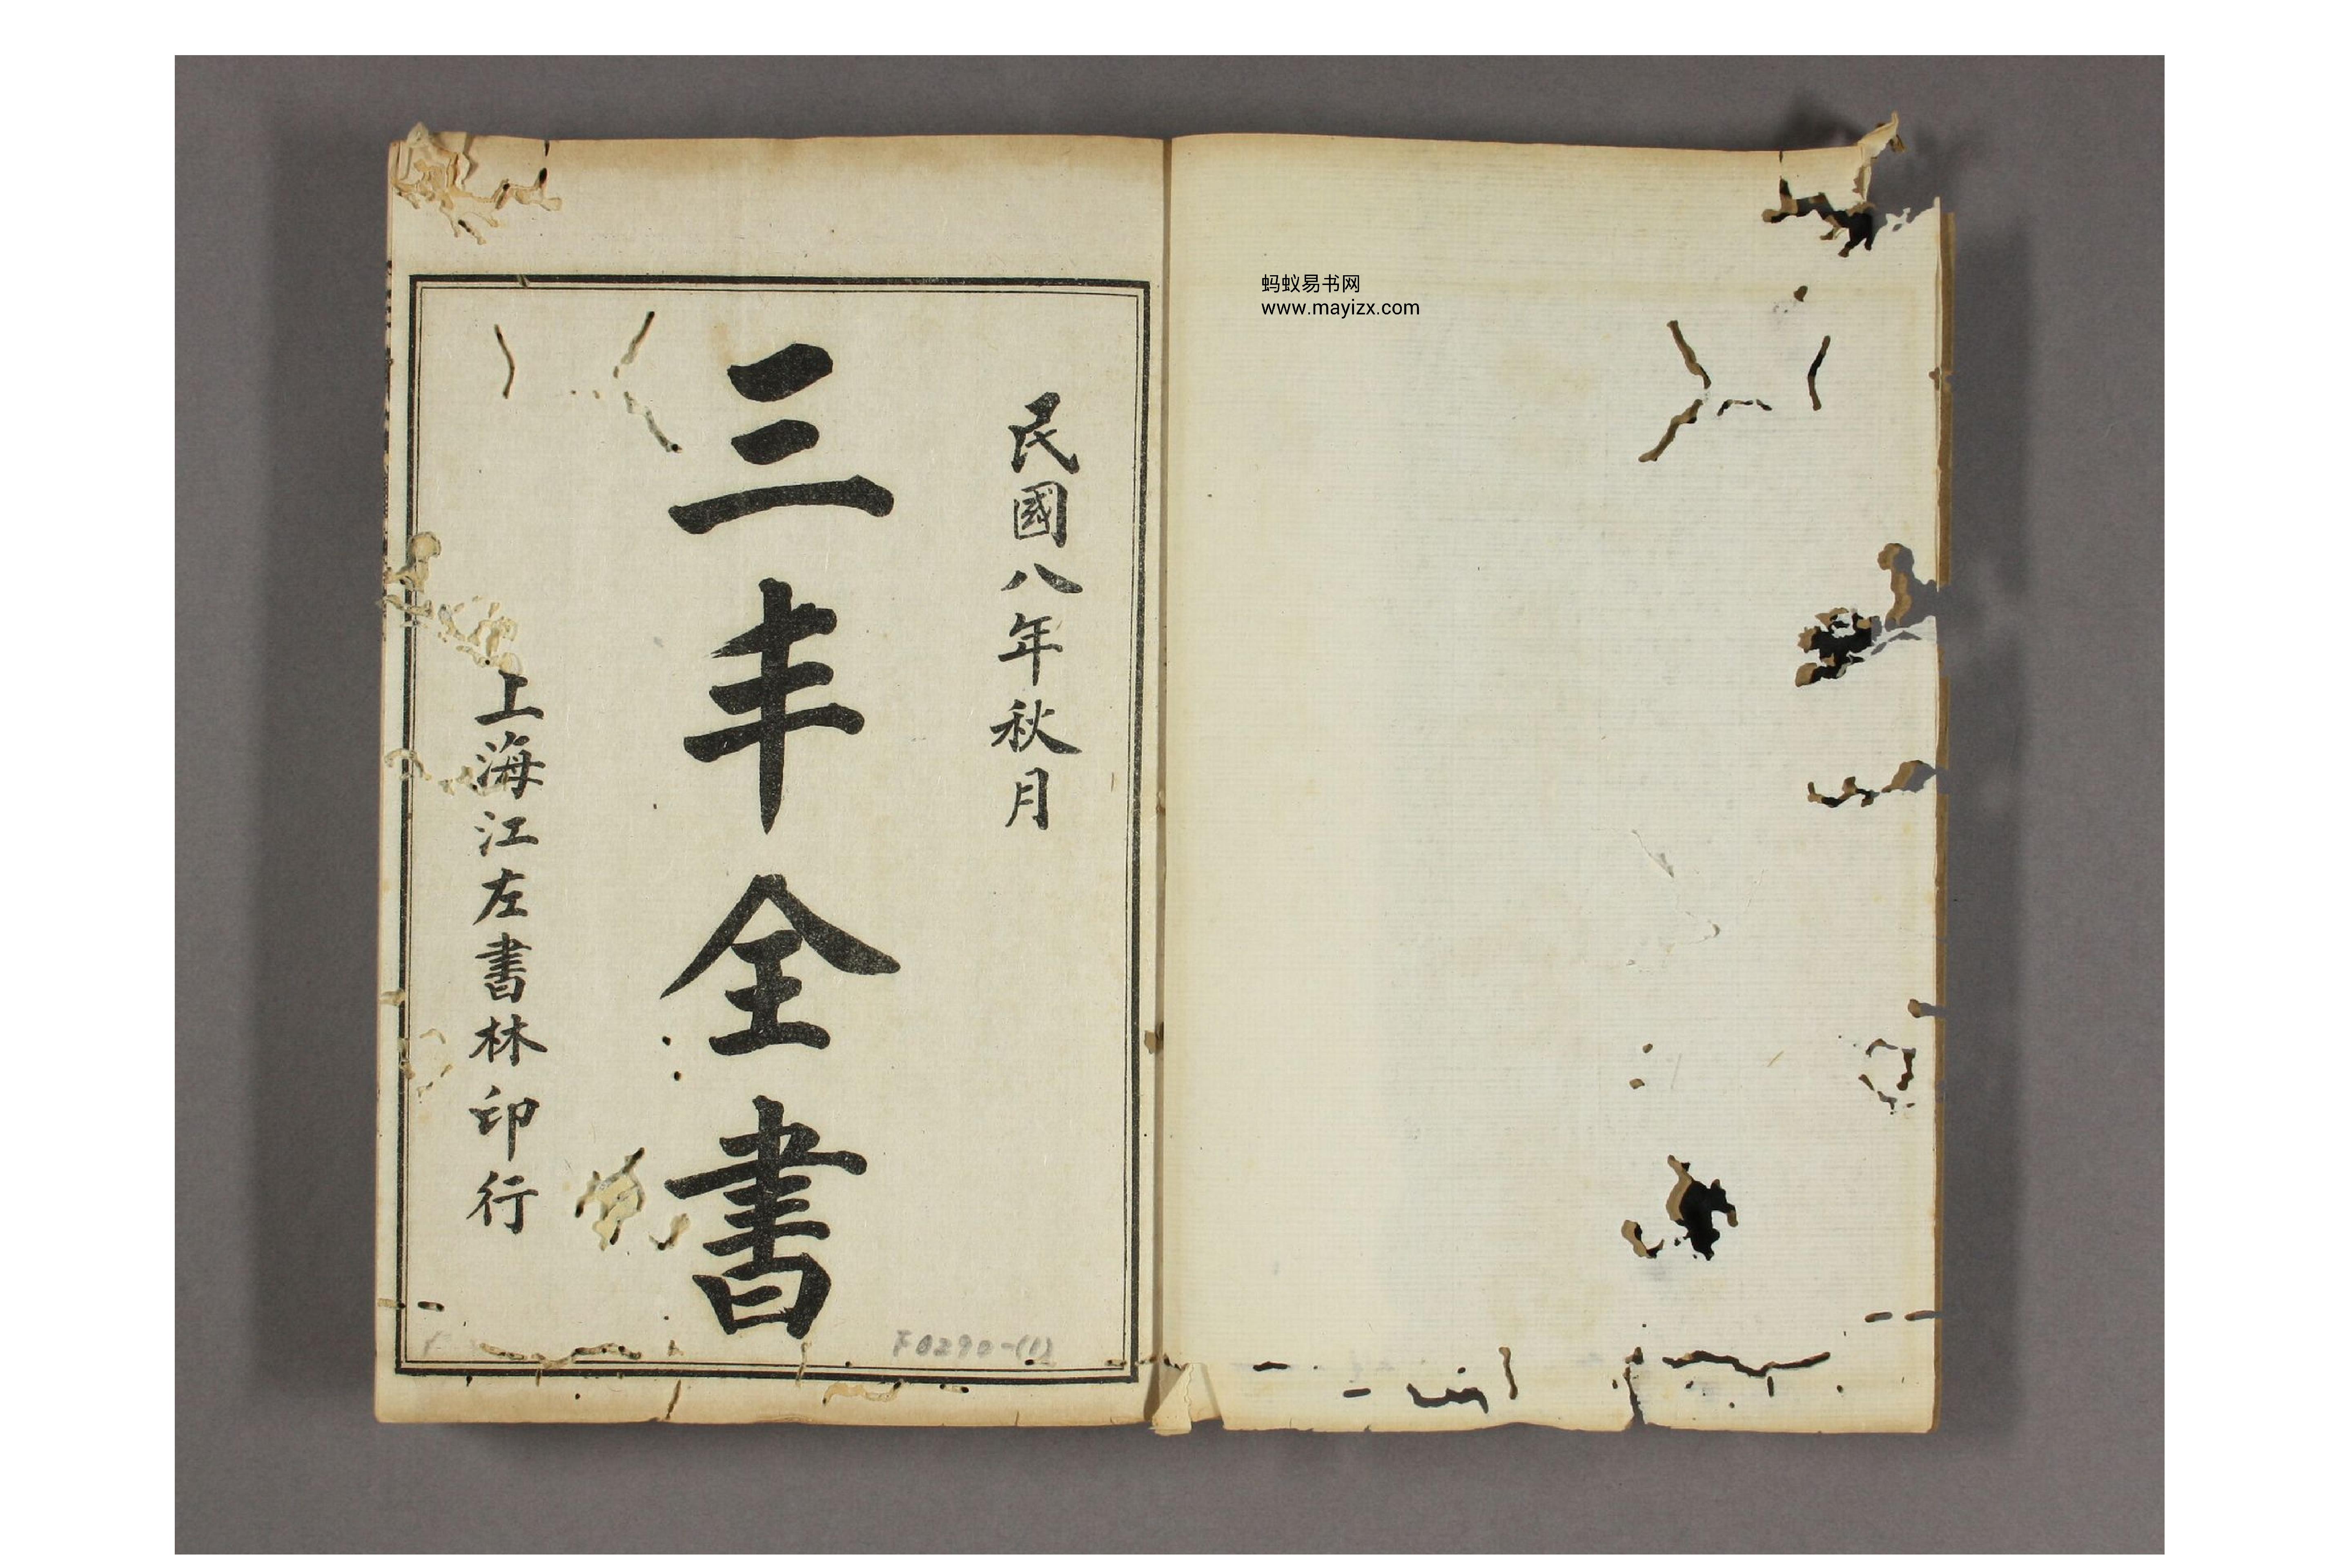 蚂蚁易书网
www.mayizx.com
民國八年秋月
三丰全書
上海江左書林印行
F0290-(1)